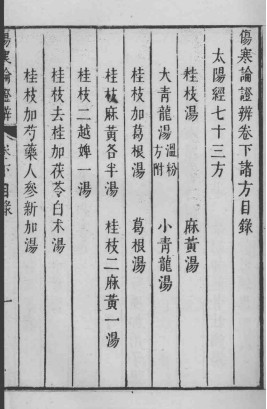 傷寒論證辨卷下諸方目錄
太陽經七十三方
桂枝湯　麻黃湯
大青龍湯 溫粉方附　小青龍湯
桂枝加葛根湯　葛根湯
桂枝麻黃各半湯　桂枝二麻黃一湯
桂枝二越婢一湯
桂枝去桂加茯苓白朮湯
桂枝加芍藥人參新加湯
傷寒論證辨 卷下目錄 一